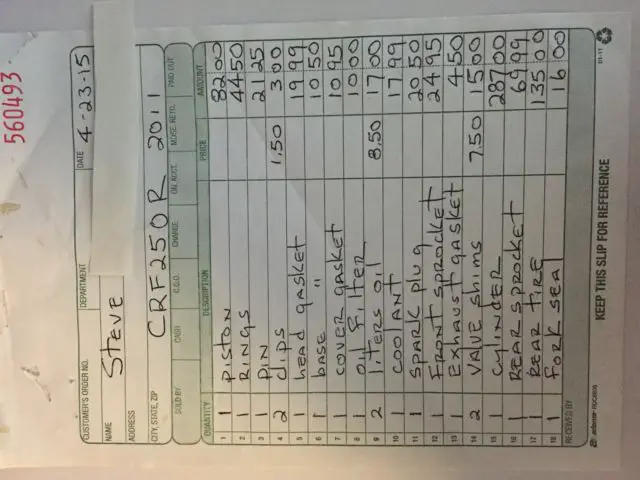 560493
CUSTOMER'S ORDER NO. DEPARTMENT DATE 4-23-15
NAME Steve
ADDRESS
CITY, STATE, ZIP CRF250R 2011
SOLD BY CASH C.O.D. CHARGE ON ACCT. MDSE. RETD. PAID OUT
QUANTITY DESCRIPTION PRICE AMOUNT
1 1 PISTON 82 00
2 1 RINGS 44 50
3 1 PIN 21 25
4 2 clips 1.50 3 00
5 1 head gasket 19 99
6 1 base " 10 50
7 1 cover gasket 10 95
8 1 oil filter 10 00
9 2 liters oil 8.50 17 00
10 1 coolant 17 99
11 1 SPARK plug 20 50
12 1 FRONT sprocket 24 95
13 1 Exhaust gasket 4 50
14 2 VALVE shims 7.50 15 00
15 1 cylINDER 287 00
16 1 REAR SPROCKET 69 99
17 1 REAR TIRE 135 00
18 1 fork seal 16 00
RECEIVED BY
adams
KEEP THIS SLIP FOR REFERENCE
01-11